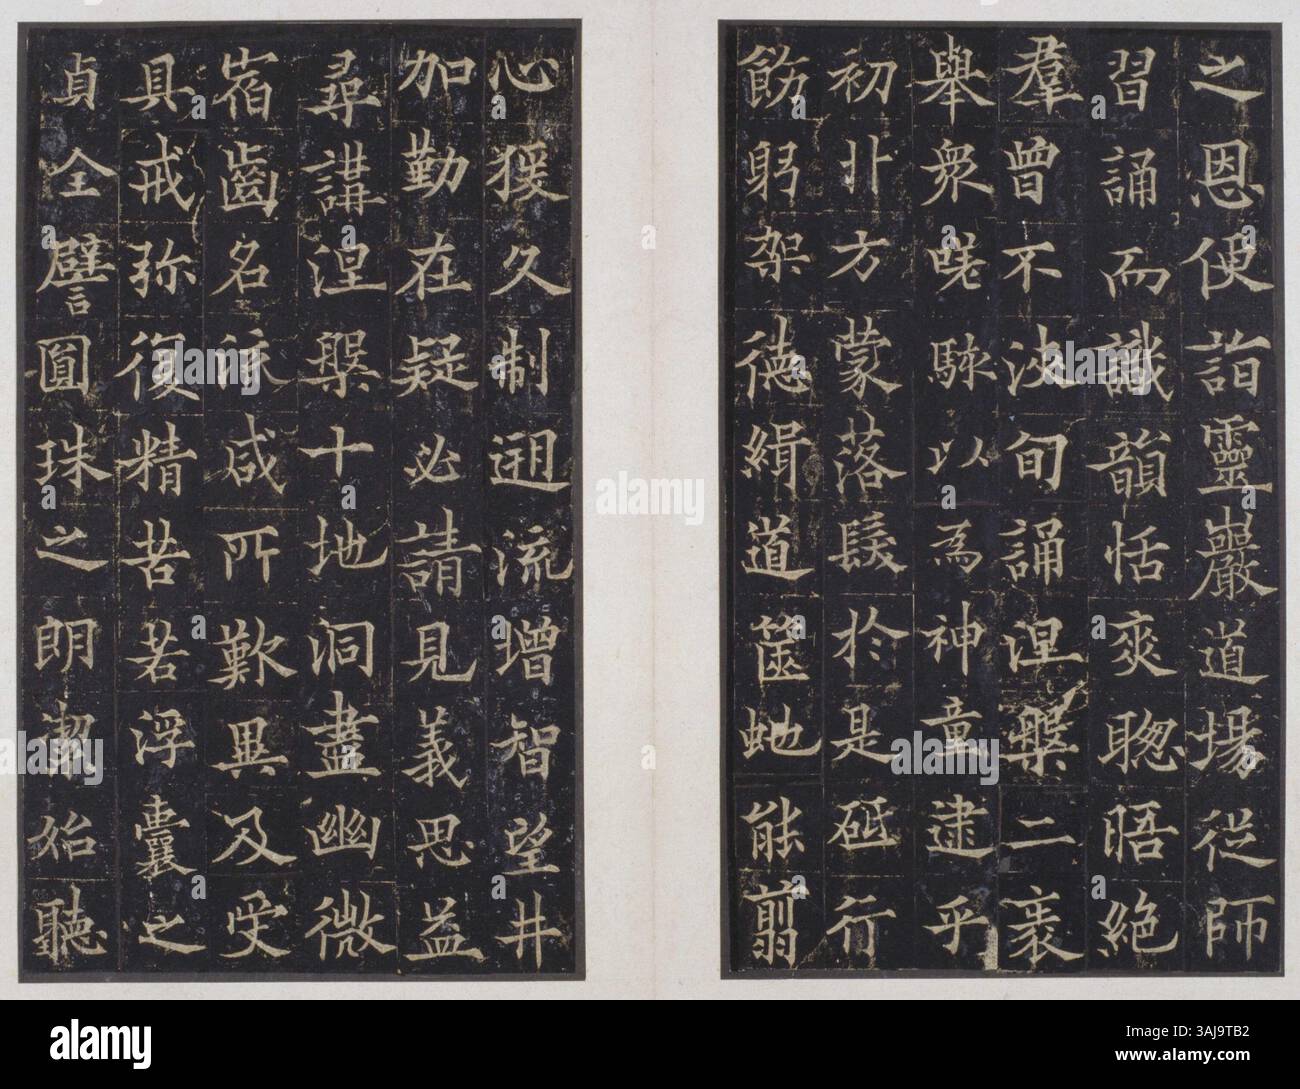 之恩便詣靈巖道場従師
習誦而識韻恬爽聦晤絶
羣曾不浹旬誦涅槃二袠
舉衆嗟駭以為神童逮乎
初丱方蒙落髮於是砥行
飭躬架德緝道篋虵能翦
心猨久制迴流增智望井
加勤在疑必請見義思益
尋講涅槃十地洞盡幽微
宿齒名流咸所歎異及受
具戒弥復精苦若浮囊之
貞全譬圓珠之朗潔始聽
alamy
Image ID: 3AJ9TB2
www.alamy.com